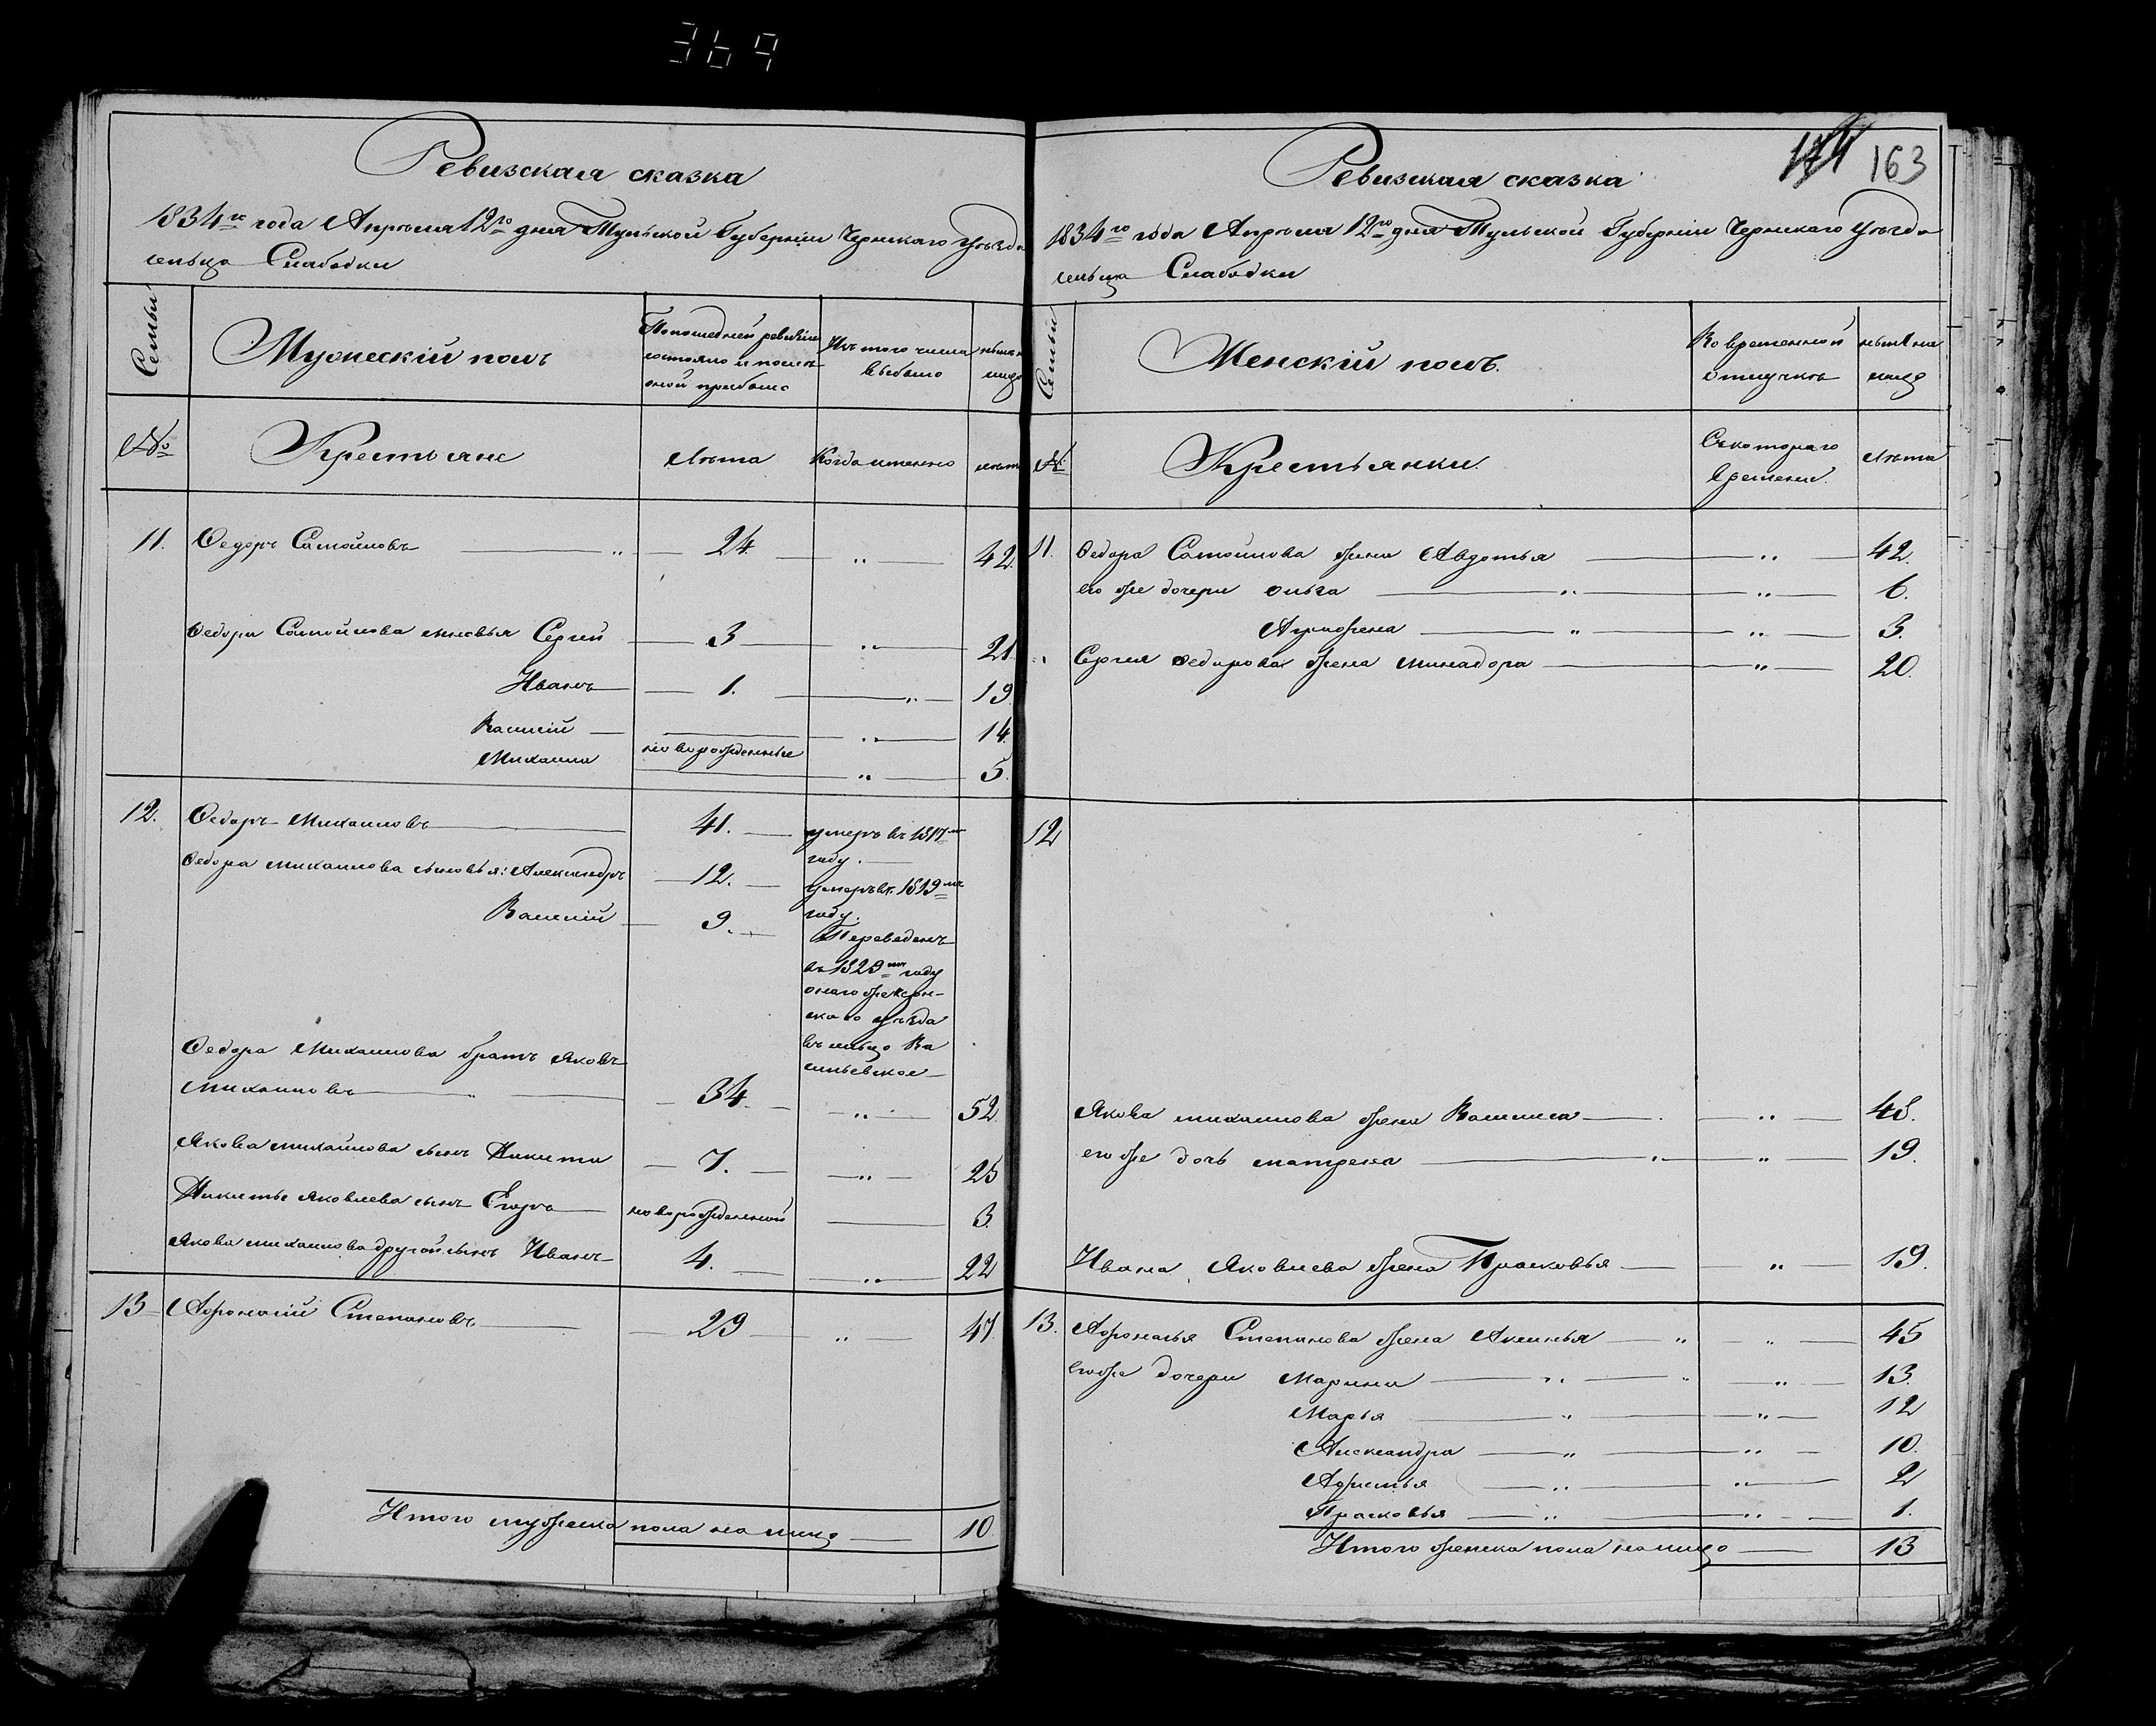 369
Ревизская сказка
1834го года Апреля 12го дня Тульской Губернiи Чернскаго уезда
сельца Слабодки
Семьи
Мужескiй полъ
По последней ревизiи
состояло и после
оной прибыло
Изъ того числа
выбыло
ныне на
лицо
№
Крестьяне
Лета
Когда именно
лета
11. Федоръ Самойловъ — 24 — „ — 42.
Федора Самойлова сыновья Сергей — 3 — „ — 21
Иванъ — 1. — „ — 19.
Василiй — „ — 14.
новорожденные
Михаила — „ — 5.
12. Федоръ Михаиловъ — 41. — умеръ въ 1817мъ
году.
Федора михаилова сыновья: Александръ — 12. — умеръ въ 1819мъ
году.
Василiй — 9. — Переведенъ
въ 1829мъ году
онаго же Черн-
скаго уезда
въ сельцо Ва
сильевское
Федора Михаилова братъ Яковъ
Михаиловъ — „ — 34. — „ — 52.
Якова михайлова сынъ Никита — 7. — „ — 25
Никиты Яковлева сынъ Егоръ — новорожденной — 3.
Якова михаилова другой сынъ Иванъ — 4. — „ — 22
13 Афонасiй Степановъ — 29 — „ — 47.
Итого мужеска пола на лицо — 10.
163
Ревизская сказка
1834го года Апреля 12го дня Тульской Губернiи Чернскаго уезда
сельца Слабодки
Семьи
Женскiй полъ.
Во временной
отлучке
ныне на
лицо
№
Крестьянки.
Съ котораго
времени.
Лета
11. Федора Самойлова жена Авдотья — „ — 42.
его же дочери Ольга — „ — „ — 6.
Агрофена — „ — „ — 3.
Сергея Федорова жена минадора — „ — 20.
12
Якова михаилова жена Василиса — „ — 48.
его же дочь матрена — „ — „ — 19.
Ивана Яковлева жена Прасковья — „ — 19.
13. Афонасья Степанова жена Аксинья — „ — „ — 45
его же дочери Марина — „ — „ — „ — 13.
Марья — „ — „ — 12
Александра — „ — „ — 10.
— „ — „ — 2
Прасковья — „ — „ — 1.
Итого женска пола на лицо — 13